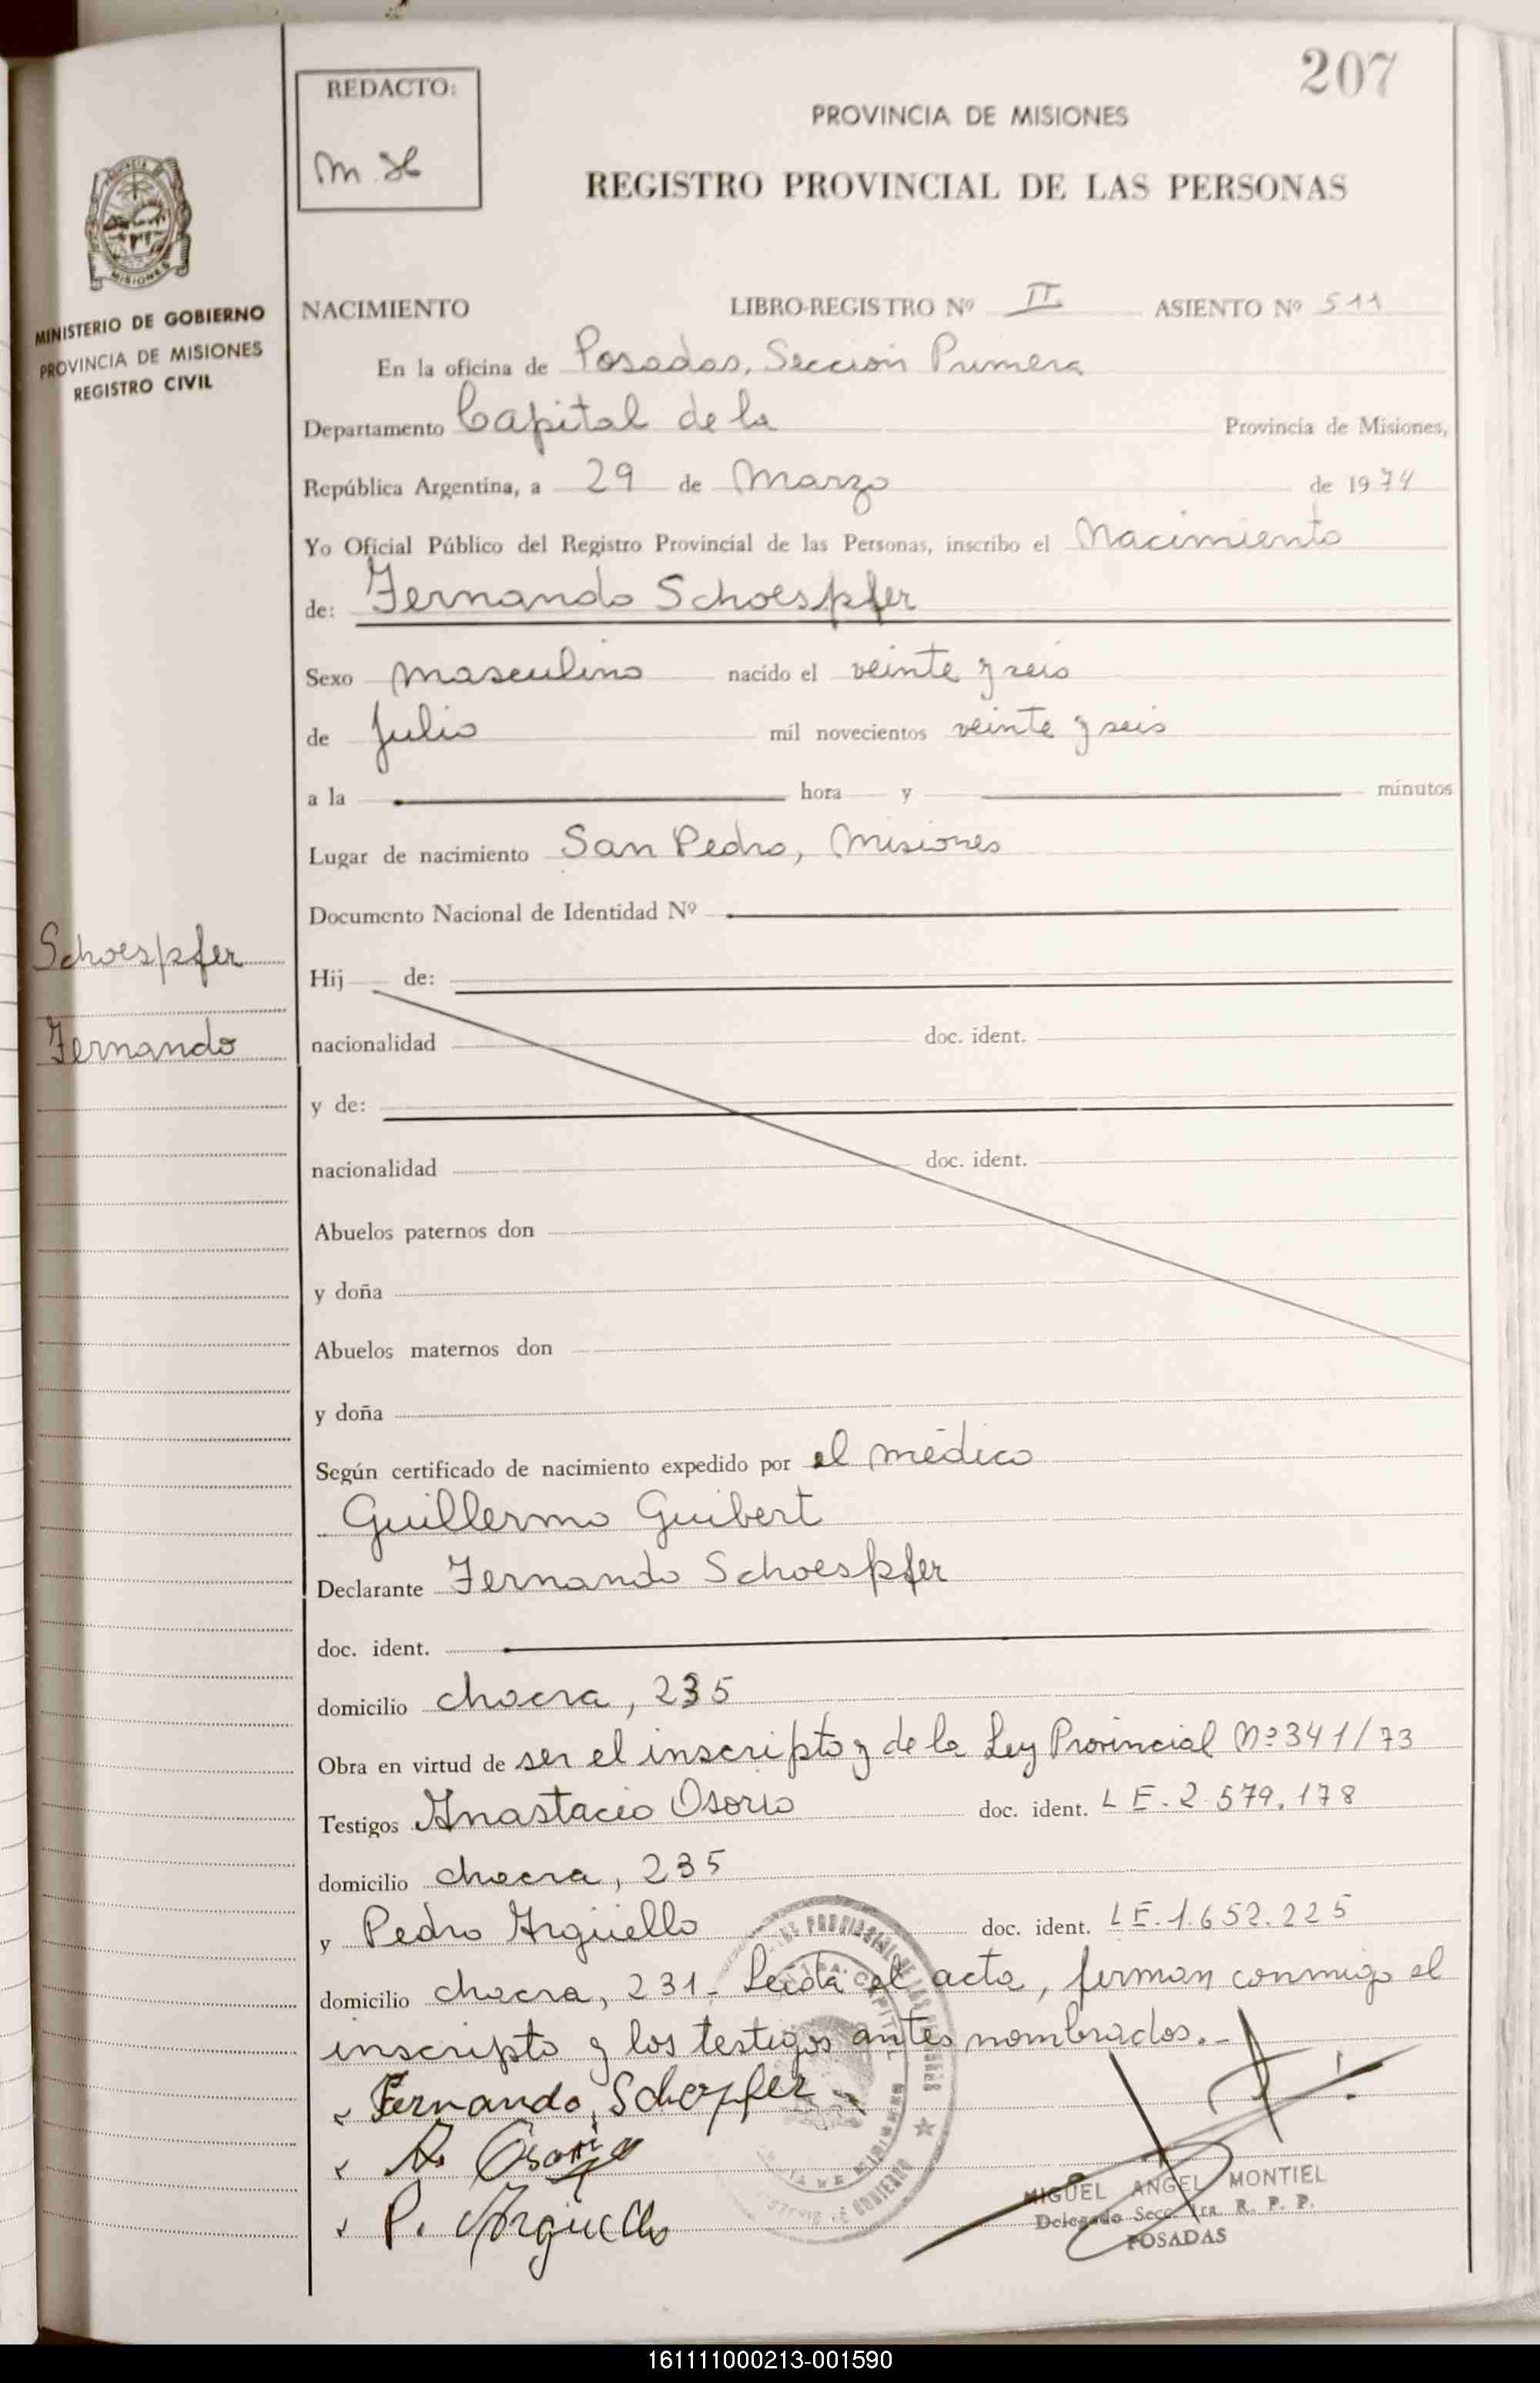 207
REDACTO:
PROVINCIA DE MISIONES
REGISTRO PROVINCIAL DE LAS PERSONAS
MISIONES
MINISTERIO DE GOBIERNO
PROVINCIA DE MISIONES
REGISTRO CIVIL
NACIMIENTO LIBRO-REGISTRO Nº II ASIENTO Nº 511
En la oficina de Posadas, Sección Primera
Departamento Capital de la Provincia de Misiones,
República Argentina, a 29 de Marzo de 1974
Yo Oficial Público del Registro Provincial de las Personas, inscribo el Nacimiento
de: Fernando Schoespfer
Sexo masculino nacido el veinte y seis
de Julio mil novecientos veinte y seis
a la hora y minutos
Lugar de nacimiento San Pedro, Misiones
Documento Nacional de Identidad Nº
Schoespfer
Fernando
Hij de:
nacionalidad doc. ident.
y de:
nacionalidad doc. ident.
Abuelos paternos don
y doña
Abuelos maternos don
y doña
Según certificado de nacimiento expedido por el médico
Guillermo Guibert
Declarante Fernando Schoespfer
doc. ident.
domicilio chacra, 235
Obra en virtud de ser el inscripto y de la Ley Provincial Nº 341/73
Testigos Anastacio Osorio doc. ident. L E. 2.579.178
domicilio chacra, 235
y Pedro Argüello doc. ident. L E. 1.652.225
domicilio chacra, 231- Leida el acta, firman conmigo el
inscripto y los testigos antes nombrados.-
Fernando Schoepfer
A. Osorio
P. Argüello
MIGUEL ANGEL MONTIEL
Delegado Secc. 1ra. R. P. P.
POSADAS
161111000213-001590